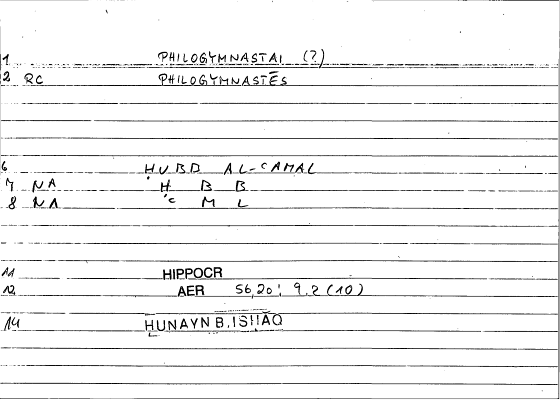 1 PHILOGYMNASTAI (?)
2 RC PHILOGYMNASTĒS
6 ḤUBB AL-ʿAMAL
7 NA Ḥ B B
8 NA ʿ M L
11 HIPPOCR
12 AER 56,20; 9.2 (10)
14 ḤUNAYN B. ISḤĀQ